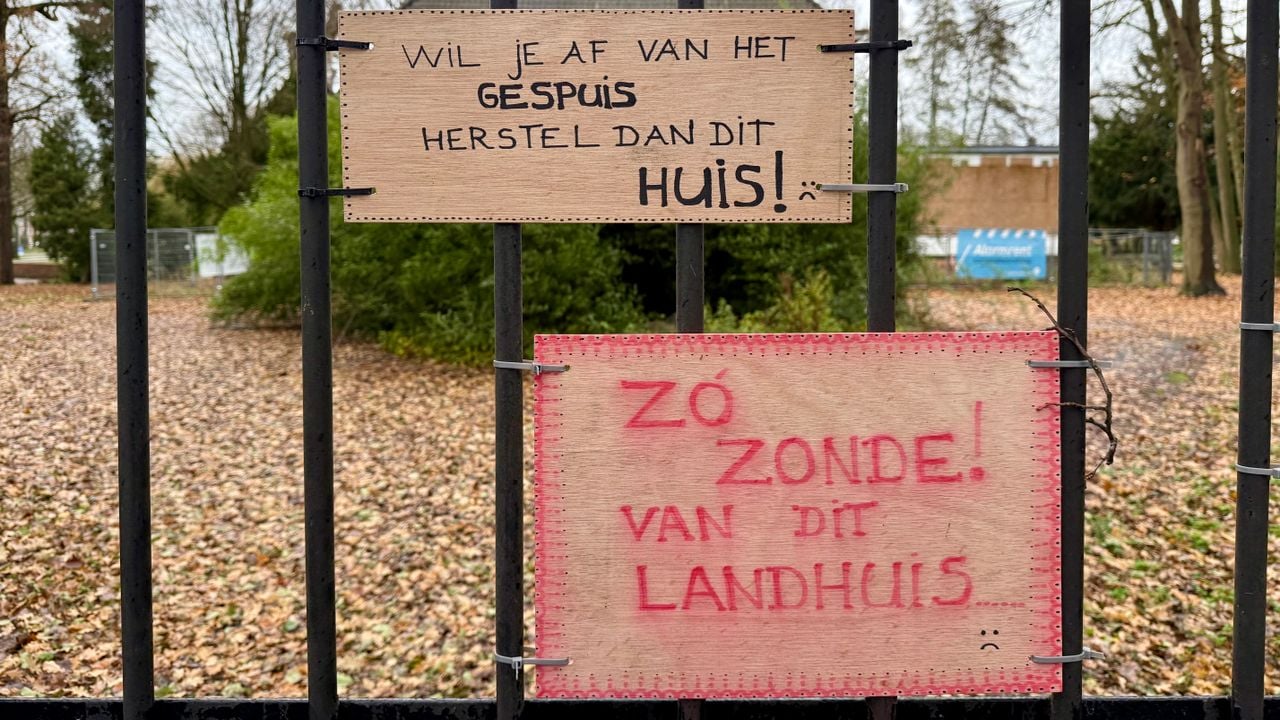 WIL JE AF VAN HET
GESPUIS
HERSTEL DAN DIT
HUIS!
ZÓ
ZONDE!
VAN DIT
LANDHUIS......
Alormrent